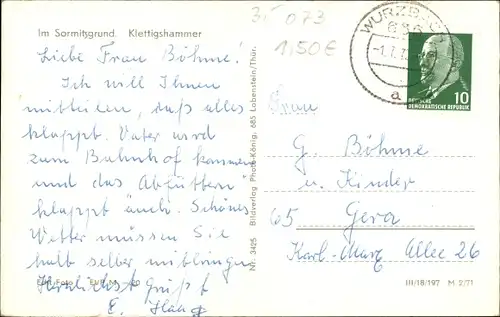 Im Sormitzgrund. Klettigshammer
35 073
1,50€
WURZBACH
-1.7.7
a
10
DEUTSCHE
DEMOKRATISCHE REPUBLIK
Liebe Frau Böhme!
Ich will Ihnen
mitteilen, daß alles
klappt. Vater wird
zum Bahnhof kommen
und das "Abfüttern"
klappt auch. Schönes
Wetter müssen Sie
halt selber mitbringen
Herzlichst Grüßt
E.
Nr. 3425 Bildverlag Photo-König, 685 Lobenstein/Thür.
Frau
G. Böhme
u. Kinder
65 Gera
Karl-Marx Allee 26
Echt Foto EVP M
III/18/197 M 2/71